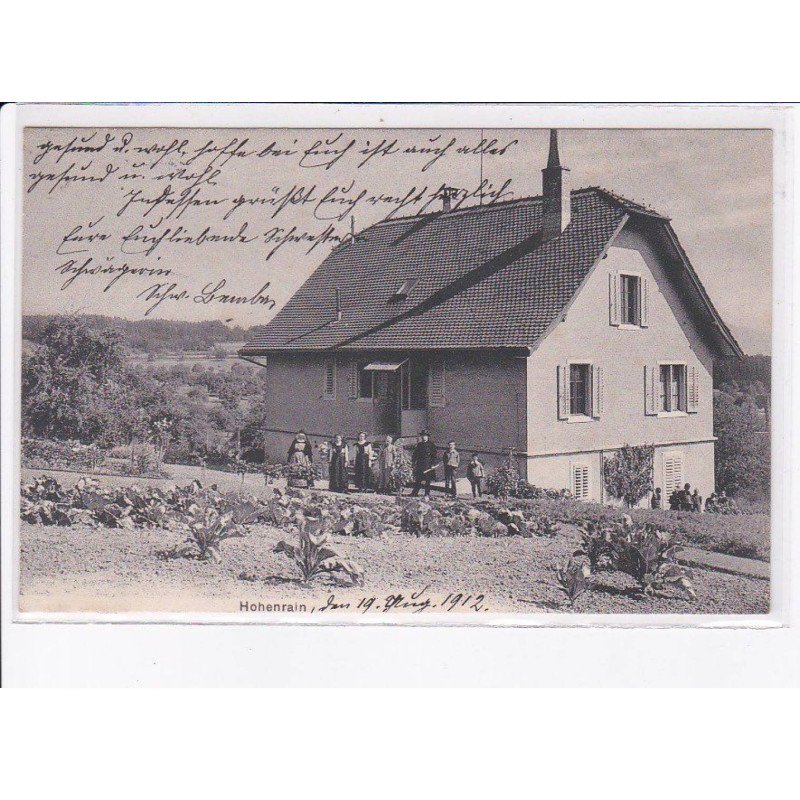 gesund u. wohl hoffe bei Euch ist auch alles
gesund u. wohl
Indessen grüßt Euch recht herzlich
Eure Euchliebende Schwester
Schwägerin
Schw. Bemba
Hohenrain, den 19. Aug. 1912.